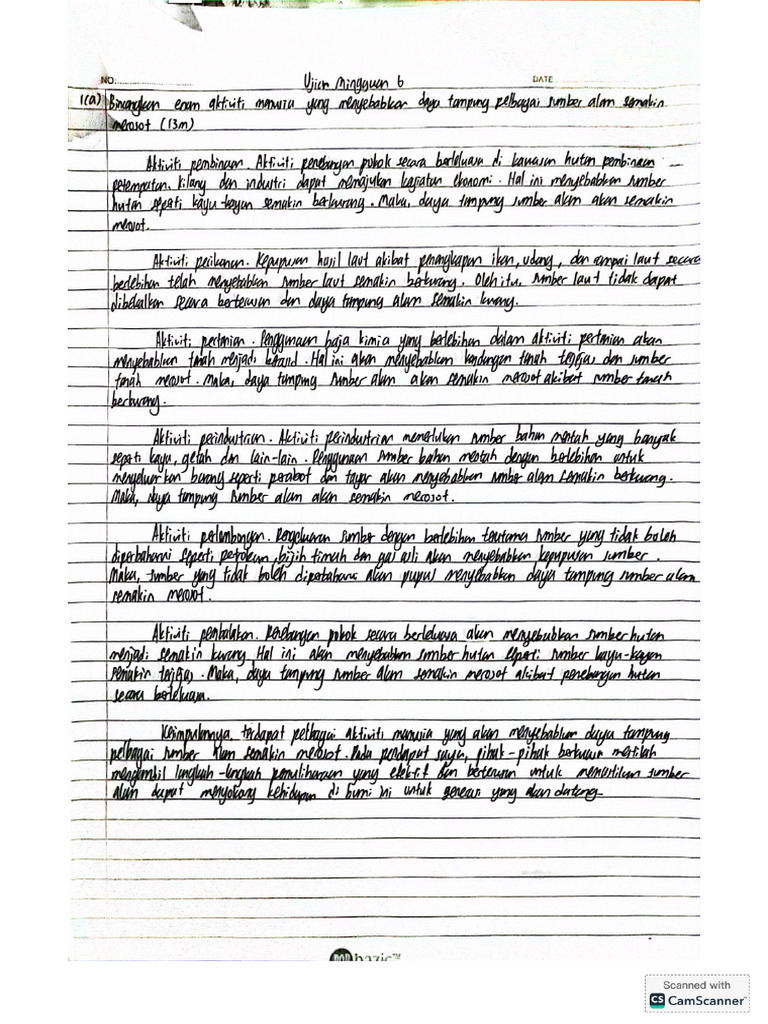 NO:
Ujian Mingguan 6
DATE
1(a) Bincangkan enam aktiviti manusia yang menyebabkan daya tampung pelbagai sumber alam semakin
merosot (13m)
Aktiviti pembinaan. Aktiviti penebangan pokok secara berleluasa di kawasan hutan pembinaan
petempatan, kilang dan industri dapat memajukan kegiatan ekonomi. Hal ini menyebabkan sumber
hutan seperti kayu-kayan semakin berkurang. Maka, daya tampung sumber alam akan semakin
merosot.
Aktiviti perikanan. Kepupusan hasil laut akibat penangkapan ikan, udang, dan rumpai laut secara
berlebihan telah menyebabkan sumber laut semakin berkurang. Oleh itu, sumber laut tidak dapat
dibekalkan secara berterusan dan daya tampung alam semakin kurang.
Aktiviti pertanian. Penggunaan baja kimia yang berlebihan dalam aktiviti pertanian akan
menyebabkan tanah menjadi berasid. Hal ini akan menyebabkan kandungan tanah terjejas dan sumber
tanah merosot. Maka, daya tampung sumber alam akan semakin merosot akibat sumber tanah
berkurang.
Aktiviti perindustrian. Aktiviti perindustrian memerlukan sumber bahan mentah yang banyak
seperti kayu, getah dan lain-lain. Penggunaan sumber bahan mentah dengan berlebihan untuk
mengeluarkan barang seperti perabot dan tayar akan menyebabkan sumber alam semakin berkurang.
Maka, daya tampung sumber alam akan semakin merosot.
Aktiviti perlombongan. Pengeluaran sumber dengan berlebihan terutama sumber yang tidak boleh
diperbaharui seperti petroleum, bijih timah dan gas asli akan menyebabkan kepupusan sumber.
Maka, sumber yang tidak boleh diperbaharui akan pupus menyebabkan daya tampung sumber alam
semakin merosot.
Aktiviti pembalakan. Penebangan pokok secara berleluasa akan menyebabkan sumber hutan
menjadi semakin kurang. Hal ini akan menyebabkan sumber hutan seperti sumber kayu-kayan
semakin terjejas. Maka, daya tampung sumber alam semakin merosot akibat penebangan hutan
secara berleluasa.
Kesimpulannya, terdapat pelbagai aktiviti manusia yang akan menyebabkan daya tampung
pelbagai sumber alam semakin merosot. Pada pendapat saya, pihak-pihak berkuasa mestilah
mengambil langkah-langkah pemuliharaan yang efektif dan berterusan untuk memastikan sumber
alam dapat menyokong kehidupan di bumi ini untuk generasi yang akan datang.
bazic™
Scanned with
CS CamScanner